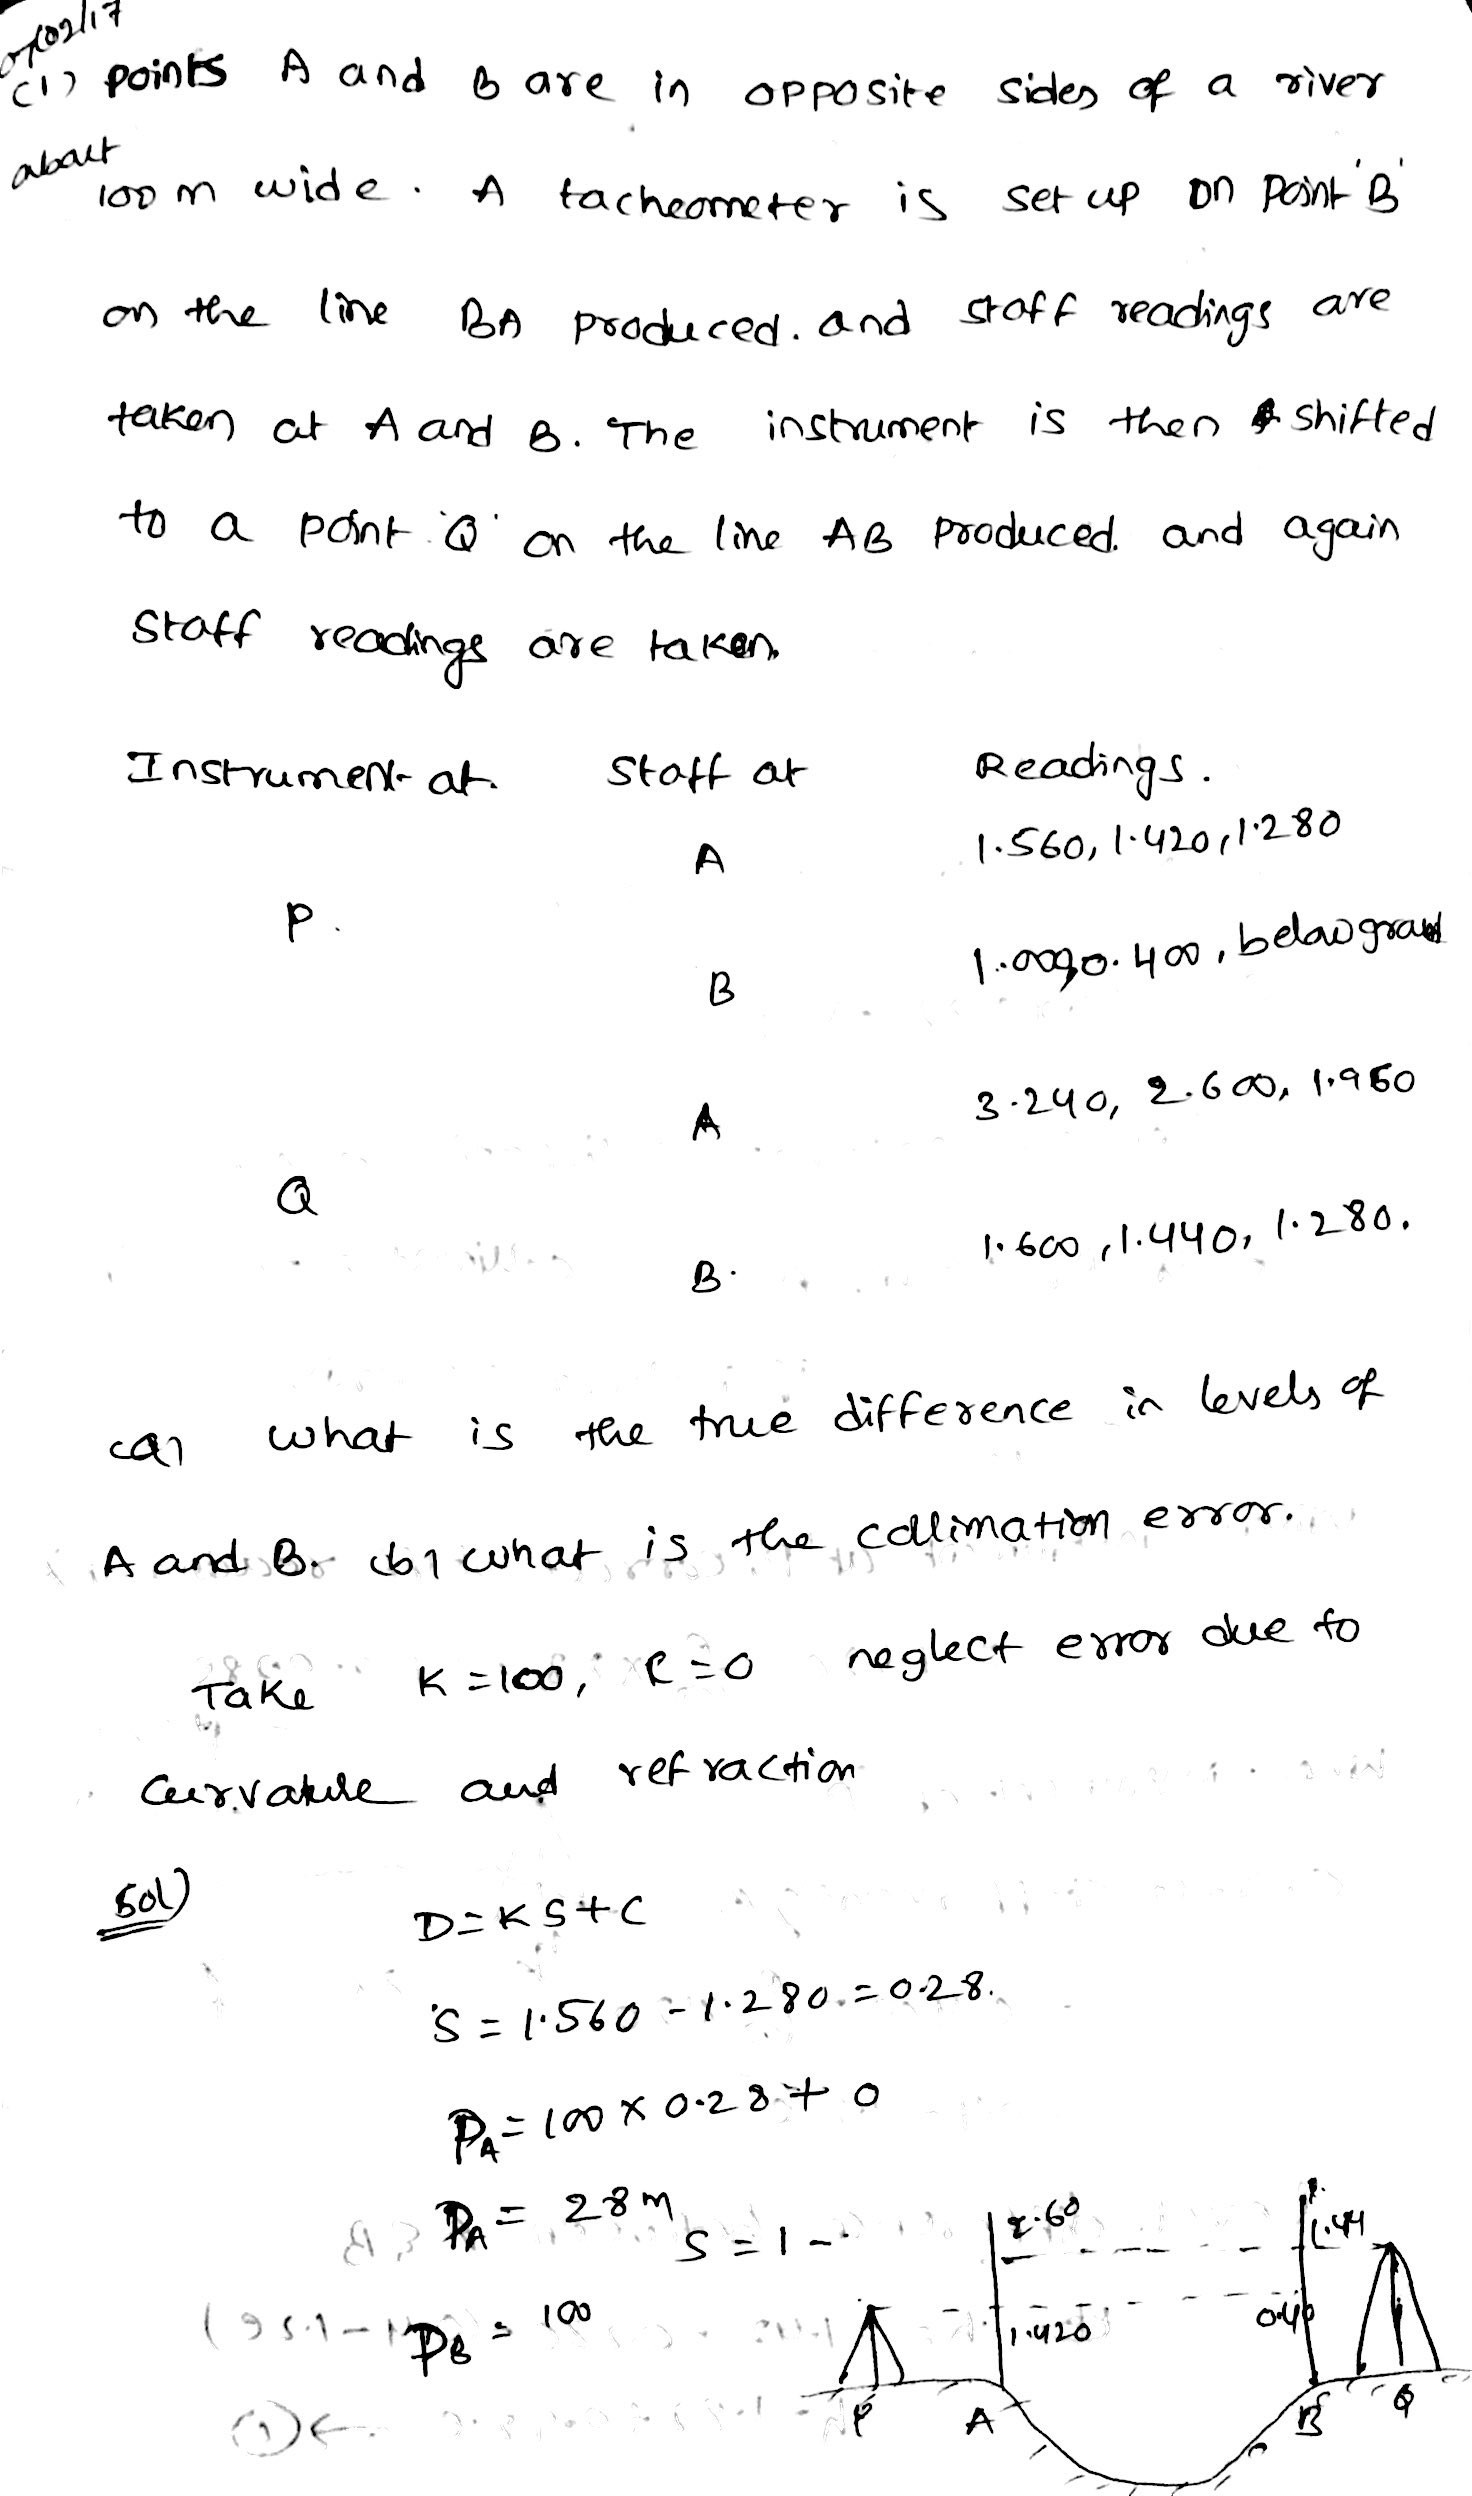 07/02/17
(1) points A and B are in opposite sides of a river
about 100 m wide. A tacheometer is set up on point 'B'
on the line BA produced. and staff readings are
taken at A and B. The instrument is then shifted
to a point 'Q' on the line AB produced. and again
Staff readings are taken.
Instrument at. Staff at Readings.
A 1.560, 1.420, 1.280
P.
B 1.000, 0.400, below ground
A 3.240, 2.600, 1.960
Q
B. 1.600, 1.440, 1.280.
(a) what is the true difference in levels of
A and B. (b) what is the collimation error.
Take K = 100, C = 0 neglect error due to
Curvature and refraction
Sol)
D = KS + C
S = 1.560 - 1.280 = 0.28.
PA = 100 x 0.28 + 0
PA = 28 m
S = 1 -
PB = 100
2.60 1.44
1.420 0.40
P A B Q